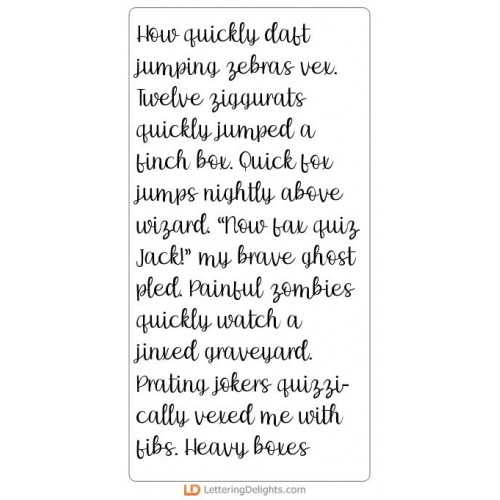 How quickly daft
jumping zebras vex.
Twelve ziggurats
quickly jumped a
finch box. Quick fox
jumps nightly above
wizard. “Now fax quiz
Jack!” my brave ghost
pled. Painful zombies
quickly watch a
jinxed graveyard.
Prating jokers quizzi-
cally vexed me with
fibs. Heavy boxes
LD LetteringDelights.com